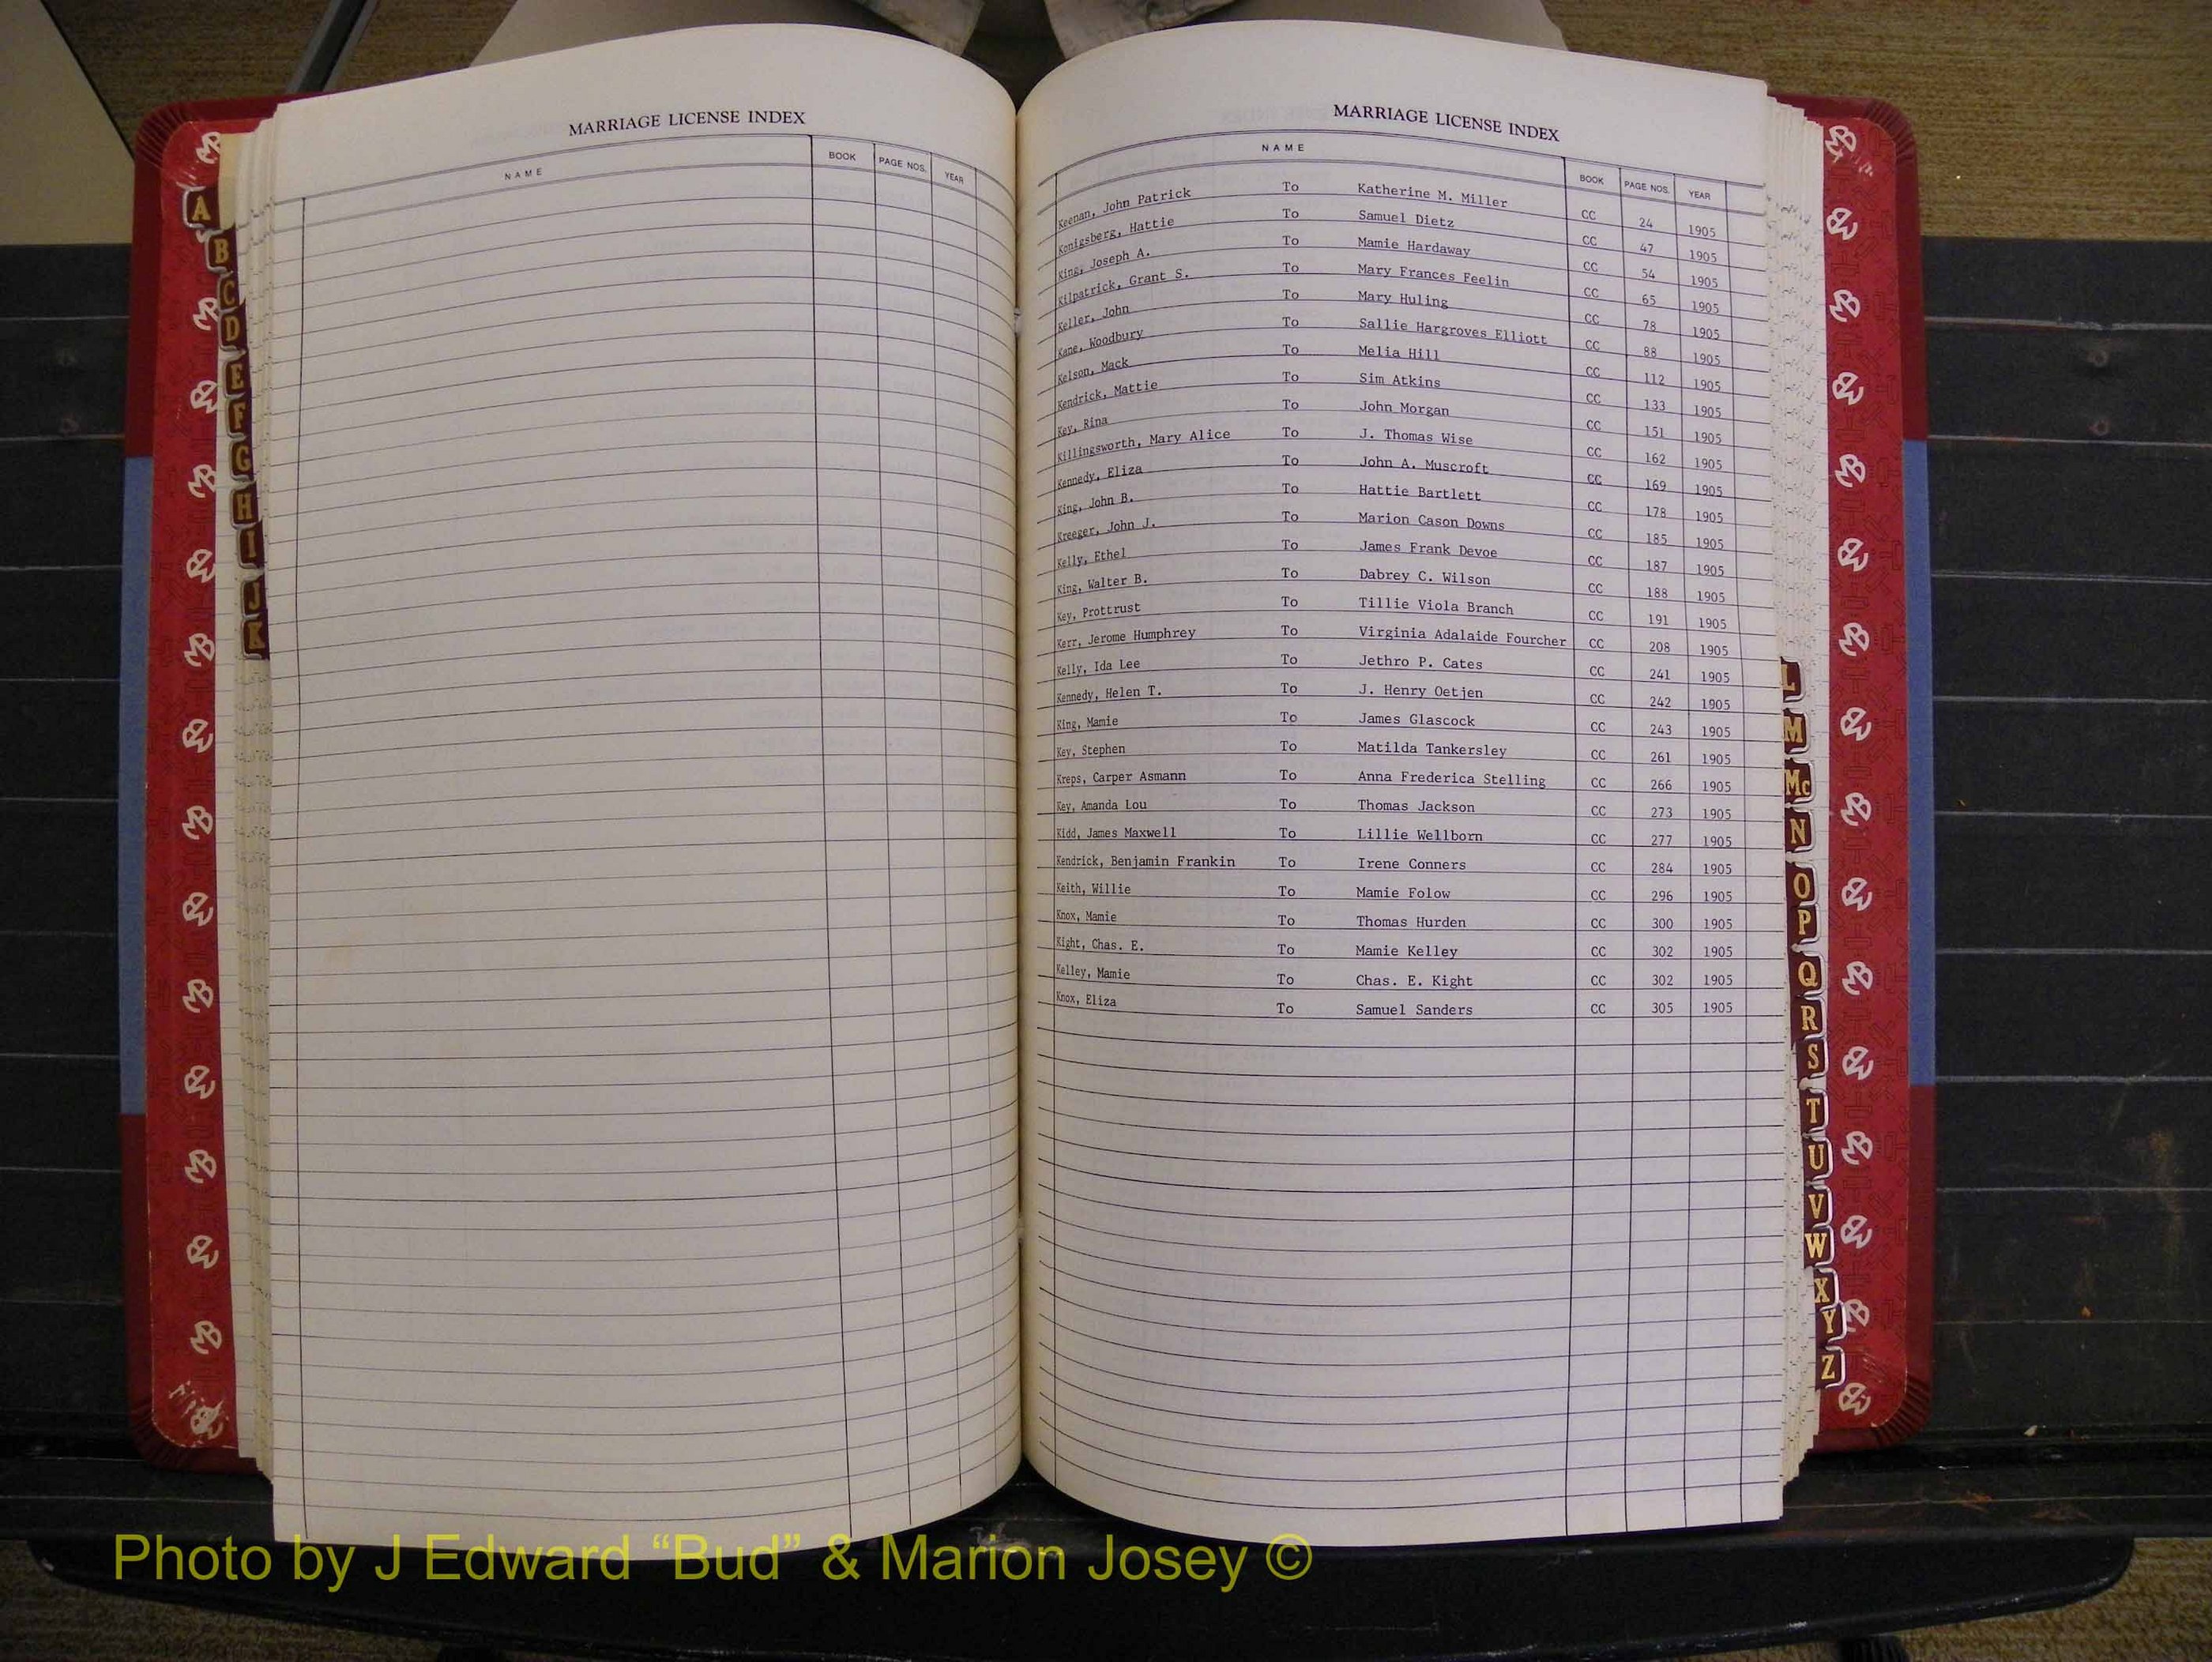 MARRIAGE LICENSE INDEX
NAME BOOK PAGE NOS. YEAR
A
B
C
D
E
F
G
H
I
J
K
MARRIAGE LICENSE INDEX
NAME BOOK PAGE NOS. YEAR
Keenan, John Patrick To Katherine M. Miller CC 24 1905
Konigsberg, Hattie To Samuel Dietz CC 47 1905
King, Joseph A. To Mamie Hardaway CC 54 1905
Kilpatrick, Grant S. To Mary Frances Feelin CC 65 1905
Keller, John To Mary Huling CC 78 1905
Kane, Woodbury To Sallie Hargroves Elliott CC 88 1905
Kelson, Mack To Melia Hill CC 112 1905
Kendrick, Mattie To Sim Atkins CC 133 1905
Key, Rina To John Morgan CC 151 1905
Killingsworth, Mary Alice To J. Thomas Wise CC 162 1905
Kennedy, Eliza To John A. Muscroft CC 169 1905
King, John B. To Hattie Bartlett CC 178 1905
Kreeger, John J. To Marion Cason Downs CC 185 1905
Kelly, Ethel To James Frank Devoe CC 187 1905
King, Walter B. To Dabrey C. Wilson CC 188 1905
Key, Prottrust To Tillie Viola Branch CC 191 1905
Kerr, Jerome Humphrey To Virginia Adalaide Fourcher CC 208 1905
Kelly, Ida Lee To Jethro P. Cates CC 241 1905
Kennedy, Helen T. To J. Henry Oetjen CC 242 1905
King, Mamie To James Glascock CC 243 1905
Key, Stephen To Matilda Tankersley CC 261 1905
Kreps, Carper Asmann To Anna Frederica Stelling CC 266 1905
Key, Amanda Lou To Thomas Jackson CC 273 1905
Kidd, James Maxwell To Lillie Wellborn CC 277 1905
Kendrick, Benjamin Frankin To Irene Conners CC 284 1905
Keith, Willie To Mamie Folow CC 296 1905
Knox, Mamie To Thomas Hurden CC 300 1905
Kight, Chas. E. To Mamie Kelley CC 302 1905
Kelley, Mamie To Chas. E. Kight CC 302 1905
Knox, Eliza To Samuel Sanders CC 305 1905
L
M
Mc
N
O
P
Q
R
S
T
U
V
W
X
Y
Z
Photo by J Edward “Bud” & Marion Josey ©